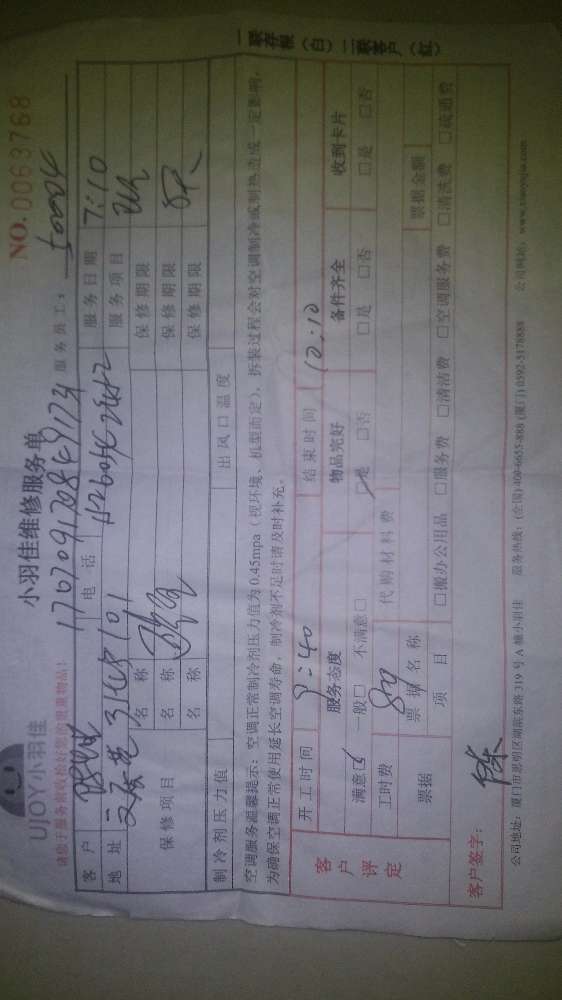 一联存根（白）二联客户（红）
UJOY小羽佳
小羽佳维修服务单
NO.0063768
请您于服务前收检好您的贵重物品！
服务员工：
客户 电话 服务日期 7:10
地址 服务项目
保修项目 名称 保修期限
名称 保修期限
名称 保修期限
制冷剂压力值 出风口温度
空调服务温馨提示：空调正常制冷剂压力值为0.45mpa（视环境、机型而定），拆装过程会对空调制冷或制热造成一定影响，
为确保空调正常使用延长空调寿命，制冷剂不足时请及时补充。
客户评定 开工时间 9:40 结束时间 12:10
服务态度 物品完好 备件齐全 收到卡片
满意☑ 一般□ 不满意□ ☑是 □否 □是 □否 □是 □否
工时费 800 代购材料费
票据 票据名称 票据金额
项目 □搬办公用品 □服务费 □清洁费 □空调服务费 □清洗费 □疏通费
客户签字：
公司地址：厦门市思明区湖滨东路319号A幢小羽佳 服务热线：(全国)400-6655-888 (厦门)0592-5178888 公司网站：www.xiaoyujia.com